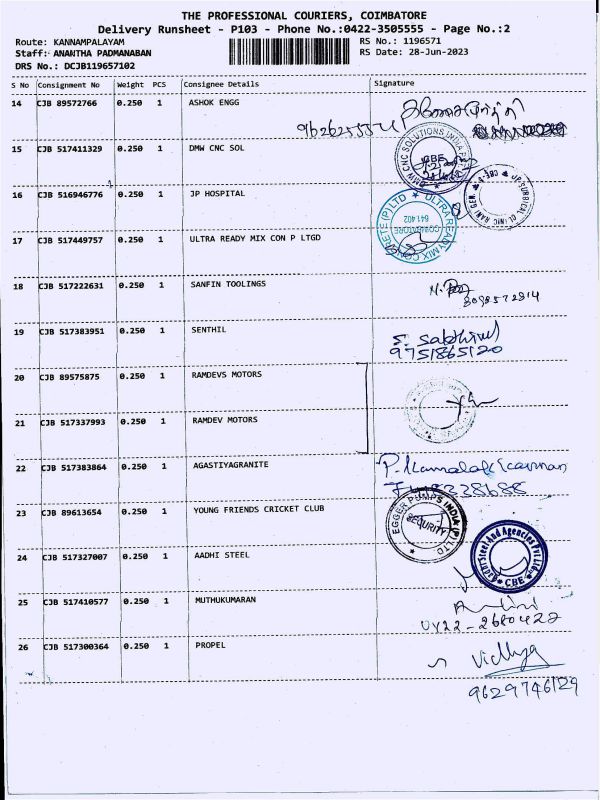 THE PROFESSIONAL COURIERS, COIMBATORE
Delivery Runsheet - P103 - Phone No.:0422-3505555 - Page No.:2
Route: KANNAMPALAYAM
RS No.: 1196571
Staff: ANANTHA PADMANABAN
RS Date: 28-Jun-2023
DRS No.: DCJB119657102
S No Consignment No Weight PCS Consignee Details Signature
14 CJB 89572766 0.250 1 ASHOK ENGG
15 CJB 517411329 0.250 1 DMW CNC SOL
DMW CNC SOLUTIONS INDIA
CBE
16 CJB 516946776 0.250 1 JP HOSPITAL
17 CJB 517449757 0.250 1 ULTRA READY MIX CON P LTGD
ULTRA READY MIX CONCRETE (P) LTD
COIMBATORE
641 402
18 CJB 517222631 0.250 1 SANFIN TOOLINGS
8098572814
19 CJB 517383951 0.250 1 SENTHIL
S. Sakthivel
9751865120
20 CJB 89575875 0.250 1 RAMDEVS MOTORS
21 CJB 517337993 0.250 1 RAMDEV MOTORS
22 CJB 517383864 0.250 1 AGASTIYAGRANITE
23 CJB 89613654 0.250 1 YOUNG FRIENDS CRICKET CLUB
EGGER PUMPS INDIA (P) LTD
SECURITY
24 CJB 517327007 0.250 1 AADHI STEEL
Aadhi Steel And Agencies Pvt Ltd.
CBE
25 CJB 517410577 0.250 1 MUTHUKUMARAN
0422-2680422
26 CJB 517300364 0.250 1 PROPEL
Vidhya
9629746129